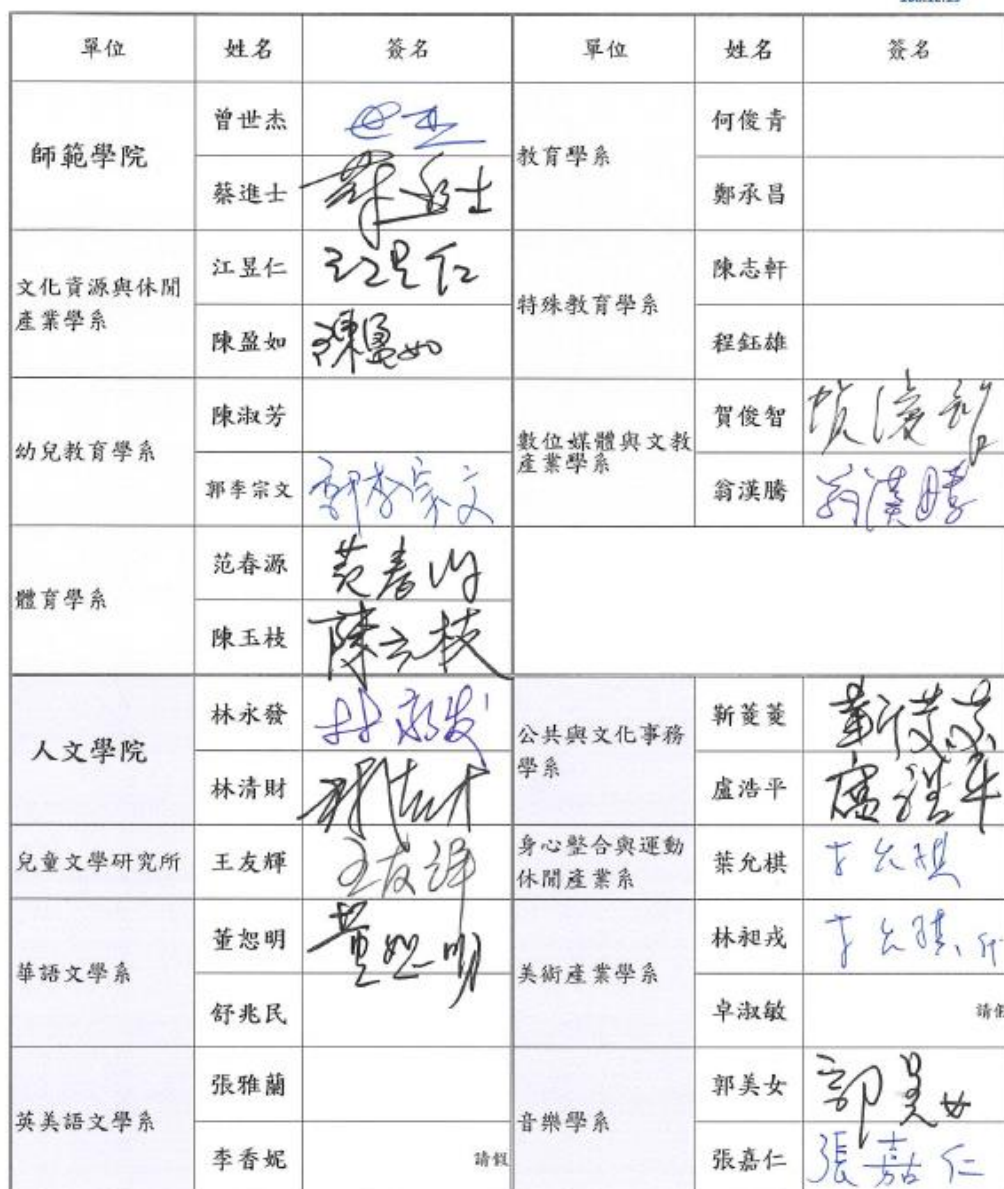 單位 姓名 簽名 單位 姓名 簽名
師範學院 曾世杰 世杰 教育學系 何俊青
蔡進士 蔡進士 鄭承昌
文化資源與休閒產業學系 江昱仁 江昱仁 特殊教育學系 陳志軒
陳盈如 陳盈如 程鈺雄
幼兒教育學系 陳淑芳 數位媒體與文教產業學系 賀俊智
郭李宗文 郭李宗文 翁漢騰 翁漢騰
體育學系 范春源 范春源
陳玉枝 陳玉枝
人文學院 林永發 林永发 公共與文化事務學系 靳菱菱 靳菱菱
林清財 盧浩平 盧浩平
兒童文學研究所 王友輝 王友輝 身心整合與運動休閒產業系 葉允棋 允棋
華語文學系 董恕明 董恕明 美術產業學系 林昶戎 允棋 代
舒兆民 卓淑敏 請假
英美語文學系 張雅蘭 音樂學系 郭美女 郭美女
李香妮 請假 張嘉仁 張嘉仁